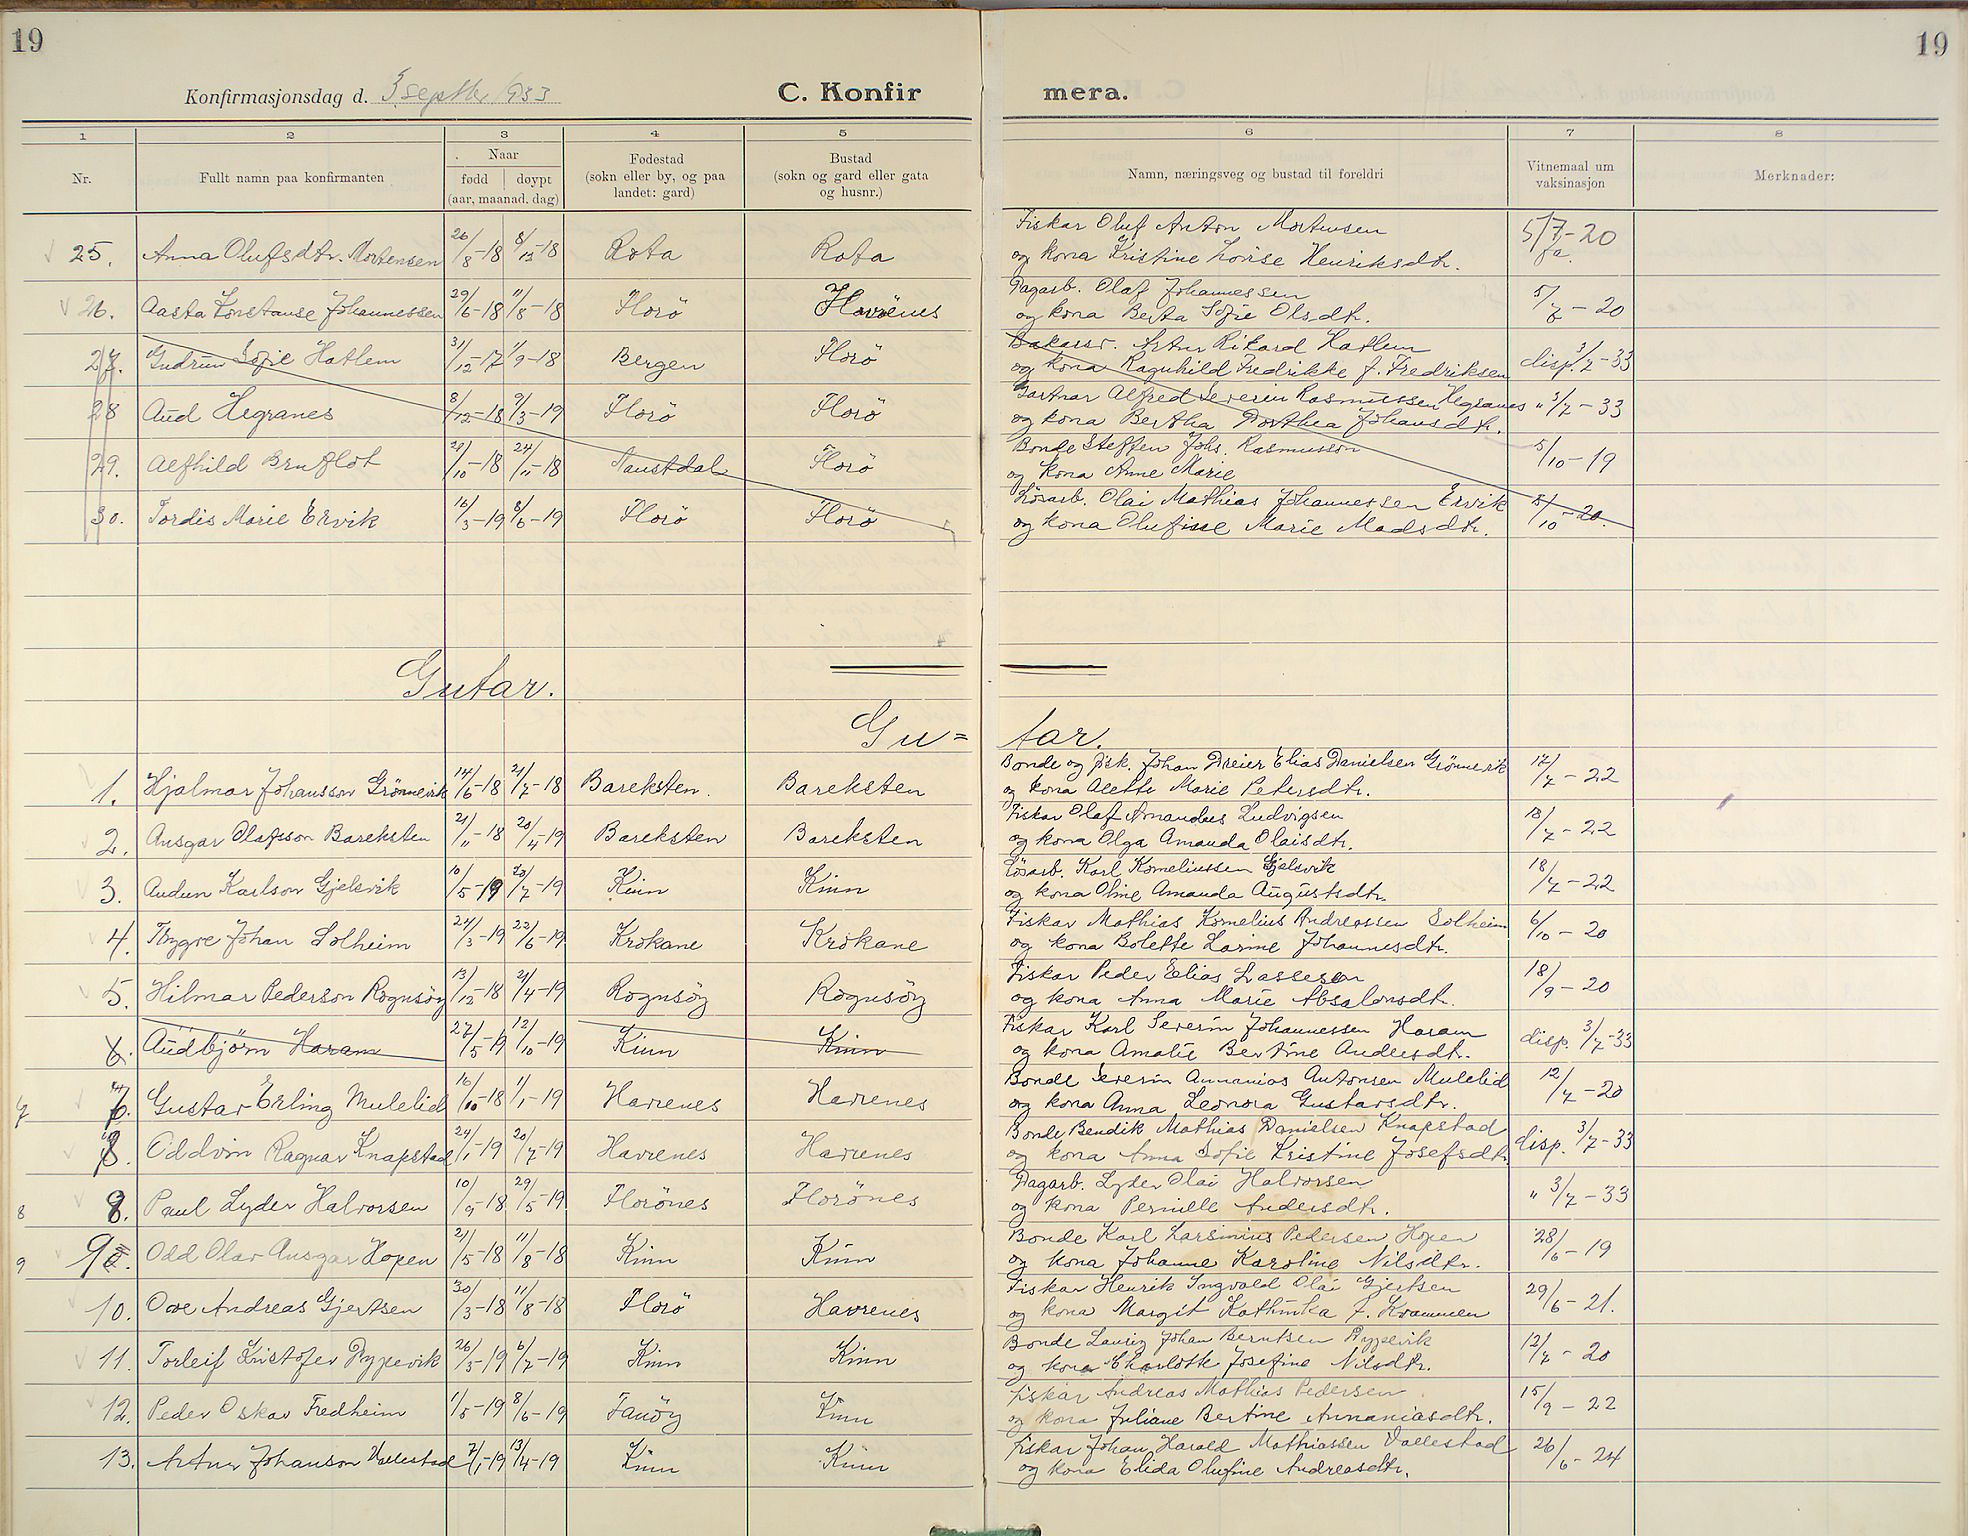 19
19
Konfirmasjonsdag d. 3 septbr 1933
C. Konfir
mera.
1 2 3 4 5 6 7 8
Nr.
Fullt namn paa konfirmanten
Naar
fødd døypt
(aar, maanad, dag)
Fødestad
(sokn eller by, og paa
landet: gard)
Bustad
(sokn og gard eller gata
og husnr.)
Namn, næringsveg og bustad til foreldri
Vitnemaal um
vaksinasjon
Merknader:
25. Anna Olufsdtr. Mortensen 26/8-18 8/12-18 Rota Rota Fiskar Oluf Anton Mortensen 5/7-20
og kona Kristine Lovise Henriksdtr.
26. Aasta Konstanse Johannessen 29/6-18 11/8-18 Florö Havrenes Dagarb. Olaf Johannessen 5/7-20
og kona Berta Sofie Olsdtr.
27. Gudrun Sofie Hatlem 31/12-17 1/9-18 Bergen Florö Bakarsv. Artur Rikard Hatlem disp. 3/7-33
og kona Ragnhild Fredrikke f. Fredriksen
28 Aud Hegranes 8/12-18 9/3-19 Florö Florö Gartnar Alfred Severin Rasmussen Hegranes " 3/7-33
og kona Bertha Dorthea Johansdtr.
29. Alfhild Bruflot 21/10-18 24/11-18 Naustdal Florö Bonde Steffen Johs. Rasmusson 5/10-19
og kona Anne Marie
30. Tordis Marie Ervik 16/3-19 8/6-19 Florö Florö Lösarb. Olai Mathias Johannessen Ervik 8/10-20.
og kona Olufine Marie Madsdtr.
Gutar.
Gu=
tar.
1. Hjalmar Johansson Grönnevik 14/6-18 21/7-18 Bareksten. Bareksten Bonde og fisk. Johan Dreier Elias Danielsen Grönnevik 12/7-22
og kona Alette Marie Petersdtr.
2. Ansgar Olafsson Bareksten 21/11-18 20/4-19 Bareksten Bareksten Fiskar Olaf Amandus Ludvigsen 18/7-22
og kona Olga Amanda Olaisdtr.
3. Audun Karlson Gjelsvik 10/5-19 20/7-19 Kinn Kinn Lösarb. Karl Korneliussen Gjelsvik 18/7-22
og kona Oline Amanda Augustsdtr.
4. Trygve Johan Solheim 24/3-19 22/6-19 Krokane Krokane Fiskar Mathias Kornelius Andreassen Solheim 6/10-20
og kona Bolette Larine Johannesdtr.
5. Hilmar Pederson Rognsöy 13/12-18 21/4-19 Rognsöy Rognsöy Fiskar Peder Elias Lassesen 18/9-20
og kona Anna Marie Absalonsdtr.
6. Audbjörn Haram 27/5-19 12/10-19 Kinn Kinn Fiskar Karl Severin Johannessen Haram disp. 3/7-33
og kona Amalie Bertine Andersdtr.
7 Gustav Erling Mulelid 16/10-18 1/1-19 Havrenes Havrenes Bonde Severin Annanias Antonsen Mulelid 12/7-20
og kona Anna Leonora Gustavsdtr.
8. Oddvin Ragnar Knapstad 24/1-19 20/7-19 Havrenes Havrenes Bonde Bendik Mathias Danielsen Knapstad disp. 3/7-33
og kona Anna Sofie Kristine Josefsdtr.
8 8. Paul Lyder Halvorsen 10/9-18 29/5-19 Florönes Florönes Dagarb. Lyder Olai Halvorsen " 3/7-33
og kona Pernille Andersdtr.
9 9. Odd Olav Ansgar Hopen 21/5-18 11/8-18 Kinn Kinn Bonde Karl Larsinius Pedersen Hopen 28/6-19
og kona Johanne Karoline Nilsdtr.
10. Ove Andreas Gjertsen 30/3-18 11/8-18 Florö Havrenes Fiskar Henrik Ingvald Olai Gjertsen 29/6-21.
og kona Margit Kathinka f. Krammen
11. Torleif Kristofer Rypevik 26/3-19 6/7-19 Kinn Kinn Bonde Lauriz Johan Berntsen Rypevik 12/7-20
og kona Charlotte Josefine Nilsdtr.
12. Peder Oskar Fredheim 1/5-19 8/6-19 Fanöy Kinn Fiskar Andreas Mathias Pedersen 15/9-22
og kona Juliane Bertine Annaniasdtr.
13. Artur Johanson Vallestad 7/1-19 13/4-19 Kinn Kinn Fiskar Johan Harald Mathiassen Vallestad 26/6-24
og kona Elida Olufine Andreasdtr.